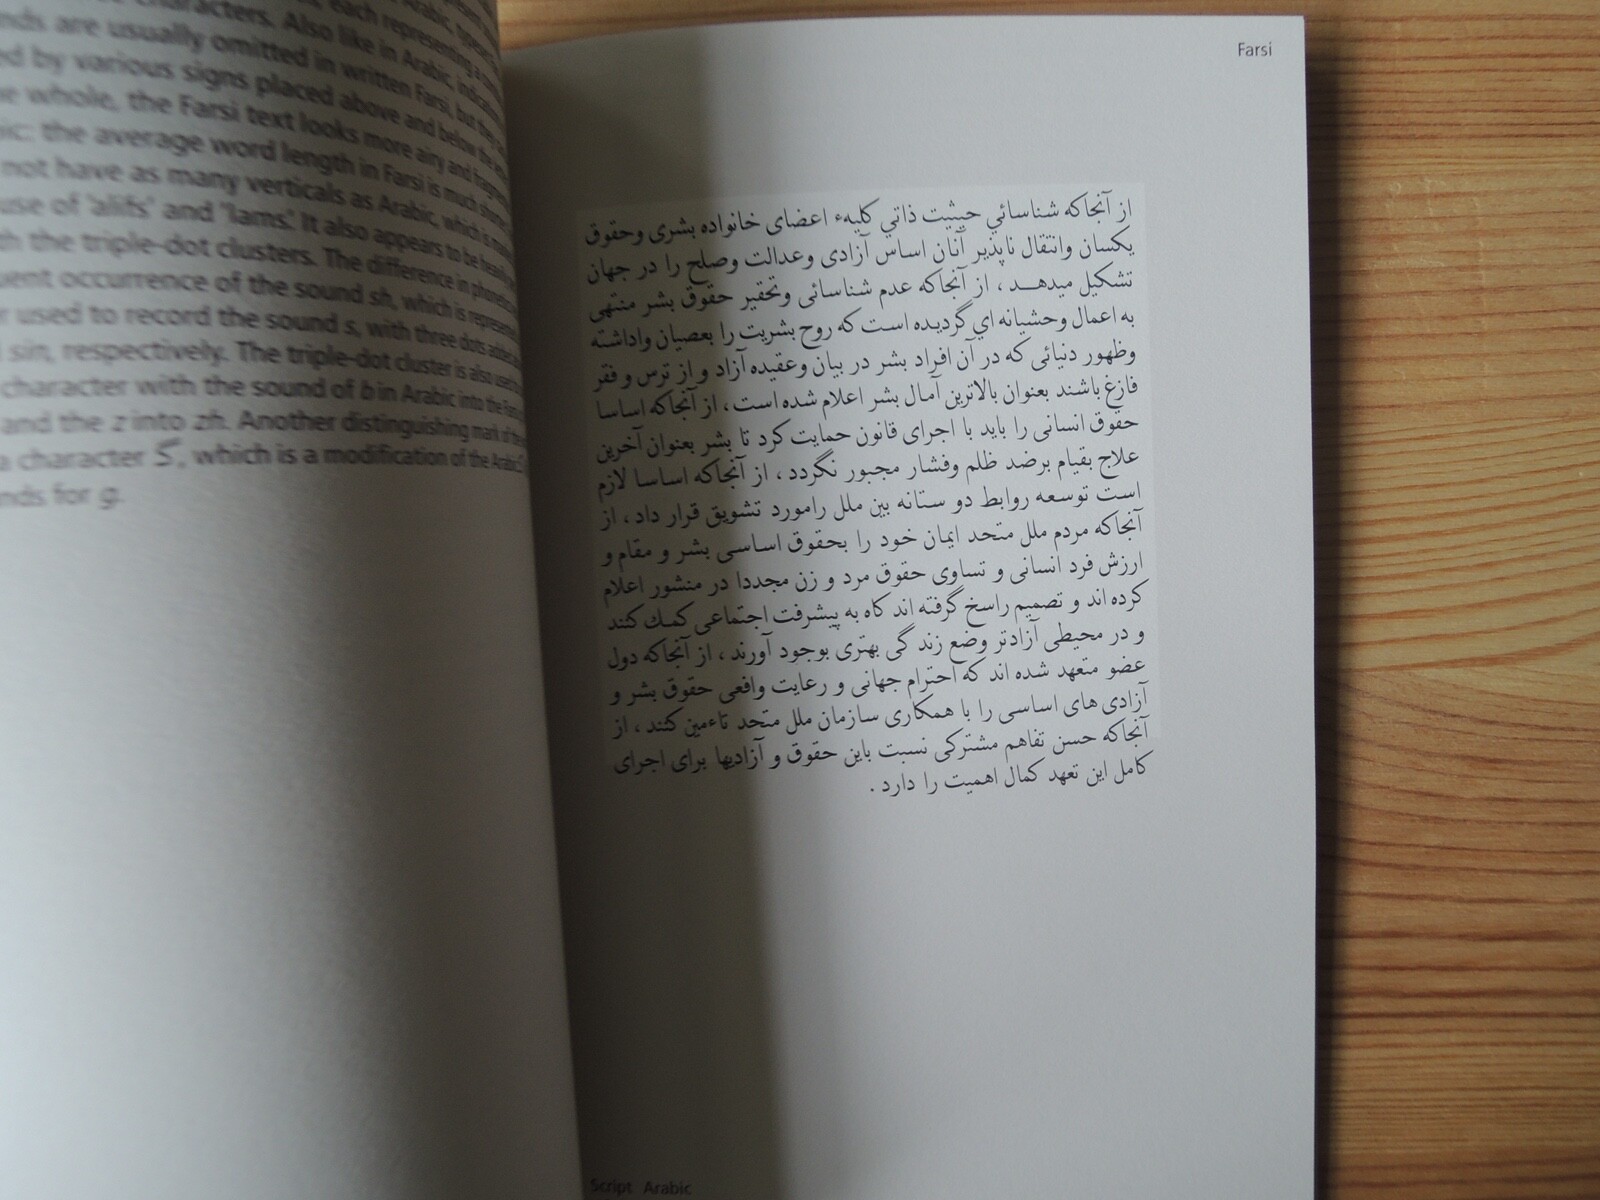 characters. Also like in Arabic, indicated
nds are usually omitted in written Farsi, but the
ed by various signs placed above and below the
e whole, the Farsi text looks more airy and
ic: the average word length in Farsi is much shorter
not have as many verticals as Arabic, which is
use of 'alifs' and 'lams'. It also appears to be
th the triple-dot clusters. The difference in
uent occurrence of the sound sh, which is
r used to record the sound s, with three dots added
sin, respectively. The triple-dot cluster is also used
character with the sound of b in Arabic into the
and the z into zh. Another distinguishing mark of
a character گ, which is a modification of the Arabic
nds for g.
Farsi
از آنجاکه شناسائي حیثیت ذاتي کلیهء اعضای خانواده بشری وحقوق
یکسان وانتقال ناپذیر آنان اساس آزادی وعدالت وصلح را در جهان
تشکیل میدهـــد ، از آنجاکه عدم شناسائی وتحقیر حقوق بشر منتهی
به اعمال وحشیانه اي گردیده است که روح بشریت را بعصیان واداشته
وظهور دنیائی که در آن افراد بشر در بیان وعقیده آزاد و از ترس و فقر
فازغ باشند بعنوان بالاترین آمال بشر اعلام شده است ، از آنجاکه اساسا
حقوق انسانی را باید با اجرای قانون حمایت کرد تا بشر بعنوان آخرین
علاج بقیام برضد ظلم وفشار مجبور نگردد ، از آنجاکه اساسا لازم
است توسعه روابط دو ستانه بین ملل رامورد تشویق قرار داد ، از
آنجاکه مردم ملل متحد ایمان خود را بحقوق اساسی بشر و مقام و
ارزش فرد انسانی و تساوی حقوق مرد و زن مجددا در منشور اعلام
کرده اند و تصمیم راسخ گرفته اند کاه به پیشرفت اجتماعی کمك کنند
و در محیطی آزادتر وضع زند گی بهتری بوجود آورند ، از آنجاکه دول
عضو متعهد شده اند که احترام جهانی و رعایت وافعی حقوق بشر و
آزادی های اساسی را با همکاری سازمان ملل متحد تاءمین کنند ، از
آنجاکه حسن تفاهم مشترکی نسبت باین حقوق و آزادیها برای اجرای
کامل این تعهد کمال اهمیت را دارد .
Script Arabic